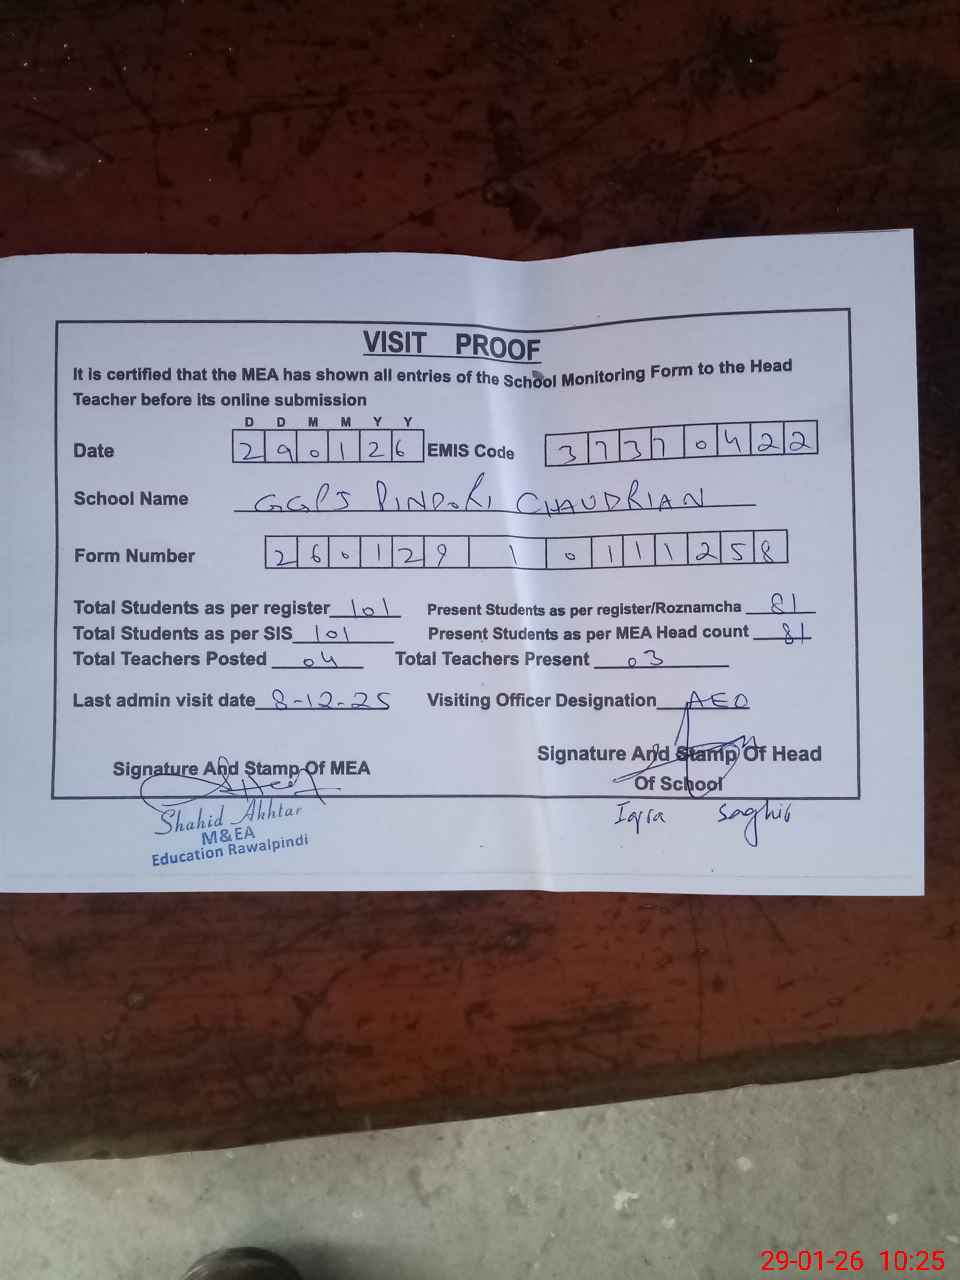 VISIT PROOF
It is certified that the MEA has shown all entries of the School Monitoring Form to the Head
Teacher before its online submission
D D M M Y Y
Date 2 9 0 1 2 6 EMIS Code 3 7 3 7 0 4 2 2
School Name GGPS PINDORI CHAUDRIAN
Form Number 2 6 0 1 2 9 1 0 1 1 1 2 5 8
Total Students as per register 101 Present Students as per register/Roznamcha 81
Total Students as per SIS 101 Present Students as per MEA Head count 81
Total Teachers Posted 04 Total Teachers Present 03
Last admin visit date 8-12-25 Visiting Officer Designation AEO
Signature And Stamp Of MEA Signature And Stamp Of Head
Of School
Shahid Akhtar
M&EA
Education Rawalpindi
Iqra Saghir
29-01-26 10:25